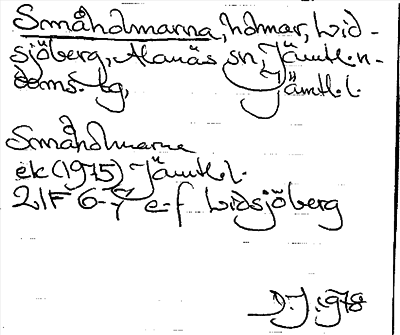 Småholmarna, holmar, Lid-
sjöberg, Alanäs sn, Jämtl. n.
doms. tg, Jämtl. l.
Småholmarna
ek (1975) Jämtl. l.
21F 6-7 e-f Lidsjöberg
D.J. 1978